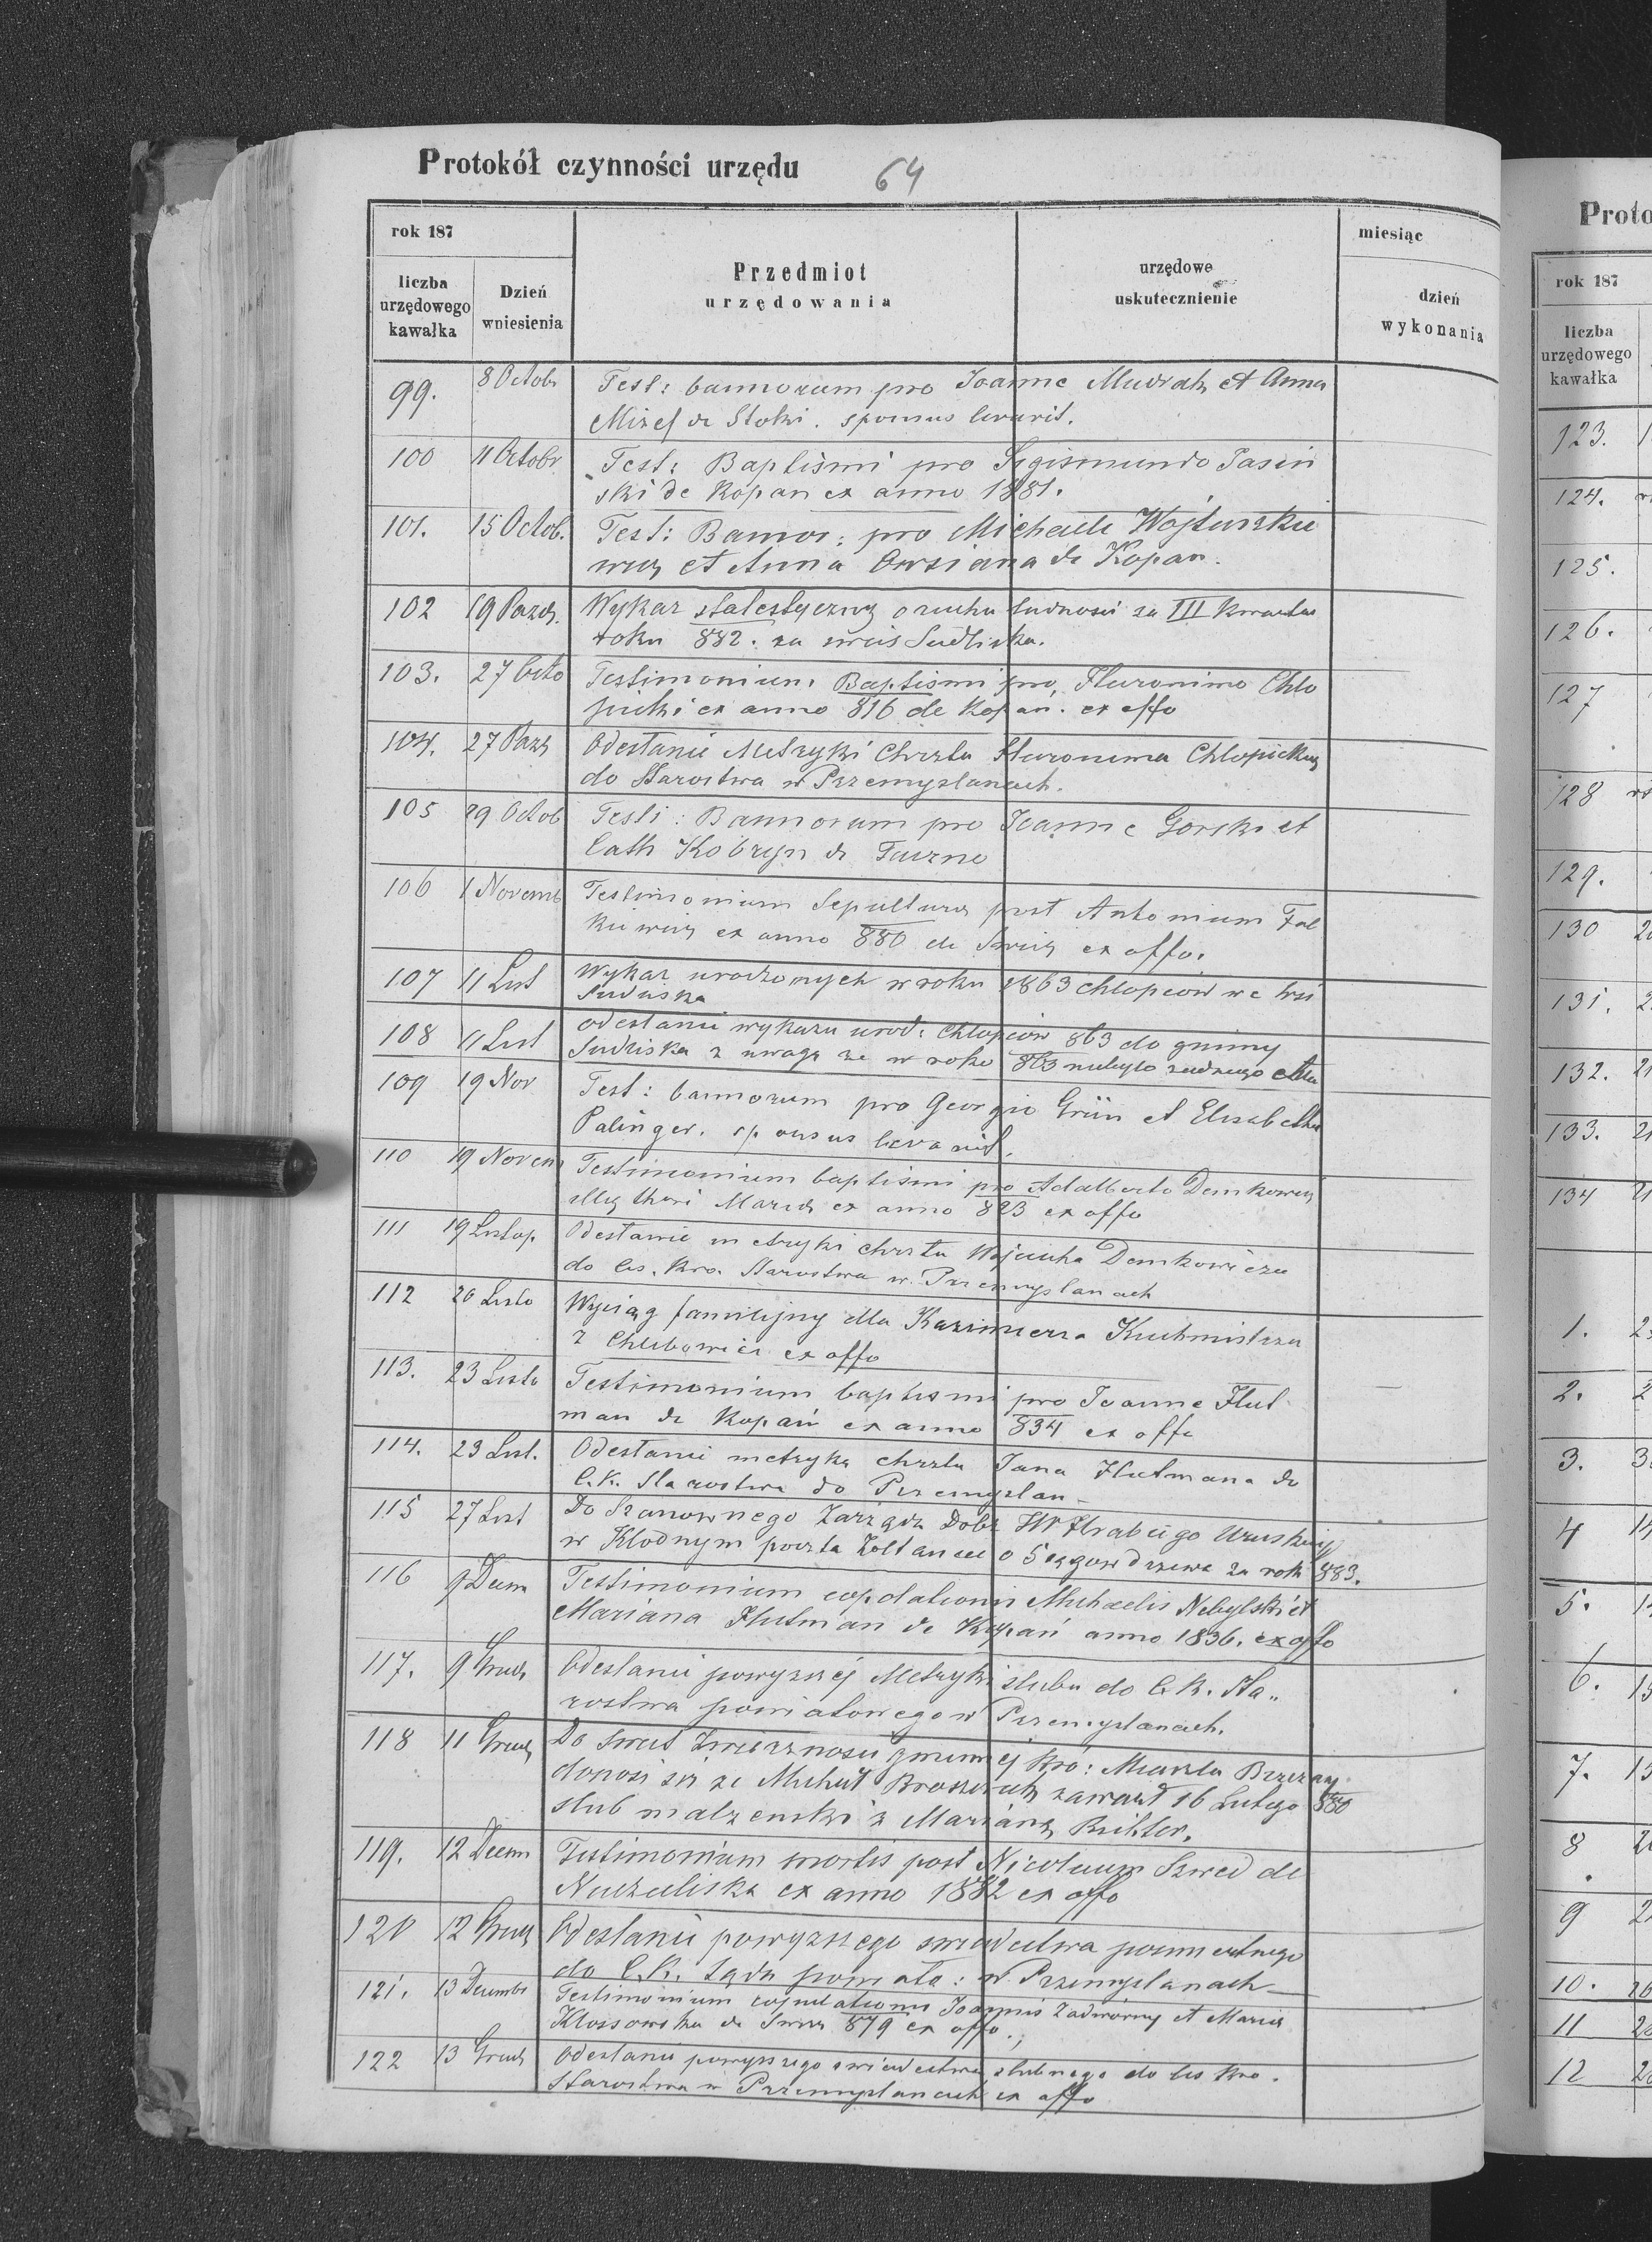 Protokół czynności urzędu 64
rok 187
miesiąc
liczba urzędowego kawałka
Dzień wniesienia
Przedmiot urzędowania
urzędowe uskutecznienie
dzień wykonania
99. 8 Octobr Test: bannorum pro Joanne et Anna
de Stoki. sponsus
100 11 Octobr Test: Baptismi pro Sigismundo Jasiń
ski de Kopan ex anno 1881.
101. 15 Octob. Test: Bannor: pro Michaele
et Anna Owsiana de Kopan.
102 19 Pazdz. Wykaz statestyczny o ruchu ludnosci za III kwartał
roku 882. za Siedliska.
103. 27 Octo Testimonium Baptismi pro Hieronimo Chło
picki ex anno 816 de Kopań. ex offo
104. 27 Pazd Odesłanie Metryki Chrztu Hieronima Chłopickieg
do Starostwa w Przemyslanach.
105 29 Octob Testi: Bannorum pro Joanne Gorski et
Cath Kobryn de
106 1 Novemb Testimonium Sepulturae post Antonium Fal
kiewicz ex anno 880 de Swirz ex offo.
107 11 List Wykaz urodzonych w roku 1863 chłopców we wsi
Siedliska
108 11 List odesłanie wykazu urod: Chłopców 863 do gminy
Siedliska z uwagą ze w roku 863 niebyło zadnego
109 19 Nov Test: bannorum pro Georgio Grün et Elisabetha
Palinger. sponsus
110 19 Novem Testimonium baptismi pro Adalberto Demkowicz
ex anno 823 ex offo
111 19 Listop. Odesłanie metryki chrztu Wojciecha Demkowicza
do Ces. Kro. Starostwa w Przemyslanach
112 20 Listo Wyciąg familijny dla Kazimierza Kuchmistrza
z Chlebowic ex offo
113. 23 Listo Testimonium baptismi pro Joanne Hut
man de Kopań ex anno 834 ex offo
114. 23 List. Odesłanie metryka chrztu Jana Hutmana do
C.K. Starostwa do Przemyslan
115 27 List Do Szanownego Zarządu Dobr JW Hrabiego Uruskiego
w Kłodnym poczta Zołtance o 5 sągow drzewa za rok 883.
116 9 Decm Testimonium copulationis Michaelis Nebylski et
Mariana Hutman de Kopań anno 1836. ex offo
117. 9 Grudz Odesłanie powyzszej Metryki slubu do C.K. Sta„
rostwa powiatowego w Przemyslanach.
118 11 Grudz Do Swiet Zwierznosci gminnej kró: Miasta Brzezan
donosi się ze Michał zawarł 16 Lutego 880
slub malzenski z Marianą Richter.
119. 12 Decem Testimonium mortis post Nicolaum Szwed de
Niedzieliska ex anno 1882 ex offo
120 12 Grudz Odesłanie powyzszego swiadectwa posmiertnego
do C.K. Sądu powiato: w Przemyslanach
121. 13 Decembr Testimonium copulationis Joannis Zadwórny et Maria
Klossowska de Swirz 879 ex offo.
122 13 Grudz Odesłanie powyzszego swiadectwa slubnego do Ces Kro.
Starostwa w Przemyslanach ex offo
Proto
rok 187
liczba urzędowego kawałka
123.
124.
125.
126.
127
128
129.
130
131.
132.
133.
134
1.
2.
3.
4
5.
6.
7.
8
9
10.
11
12